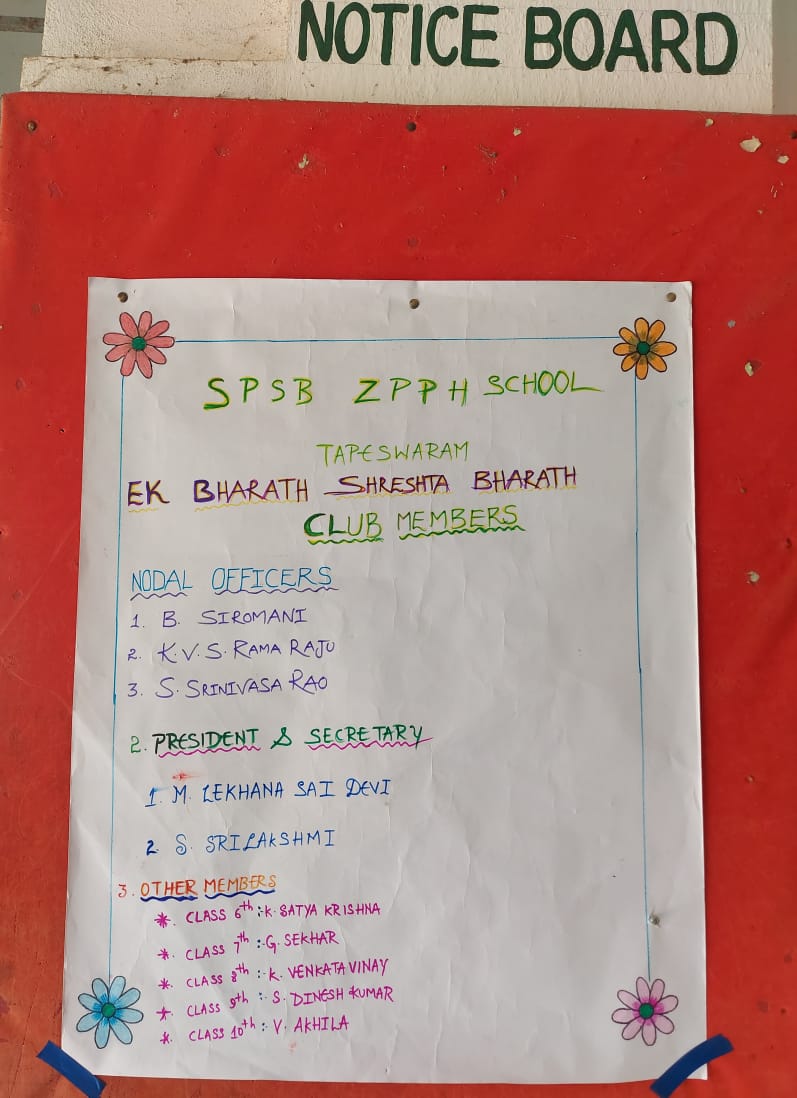 NOTICE BOARD
SPSB ZPPH SCHOOL
TAPESWARAM
EK BHARATH SHRESHTA BHARATH
CLUB MEMBERS
NODAL OFFICERS
1. B. SIROMANI
2. K.V.S. RAMA RAJU
3. S. SRINIVASA RAO
2. PRESIDENT & SECRETARY
1. M. LEKHANA SAI DEVI
2. S. SRILAKSHMI
3. OTHER MEMBERS
*. CLASS 6th :- K. SATYA KRISHNA
*. CLASS 7th :- G. SEKHAR
*. CLASS 8th :- K. VENKATA VINAY
*. CLASS 9th :- S. DINESH KUMAR
*. CLASS 10th :- V. AKHILA